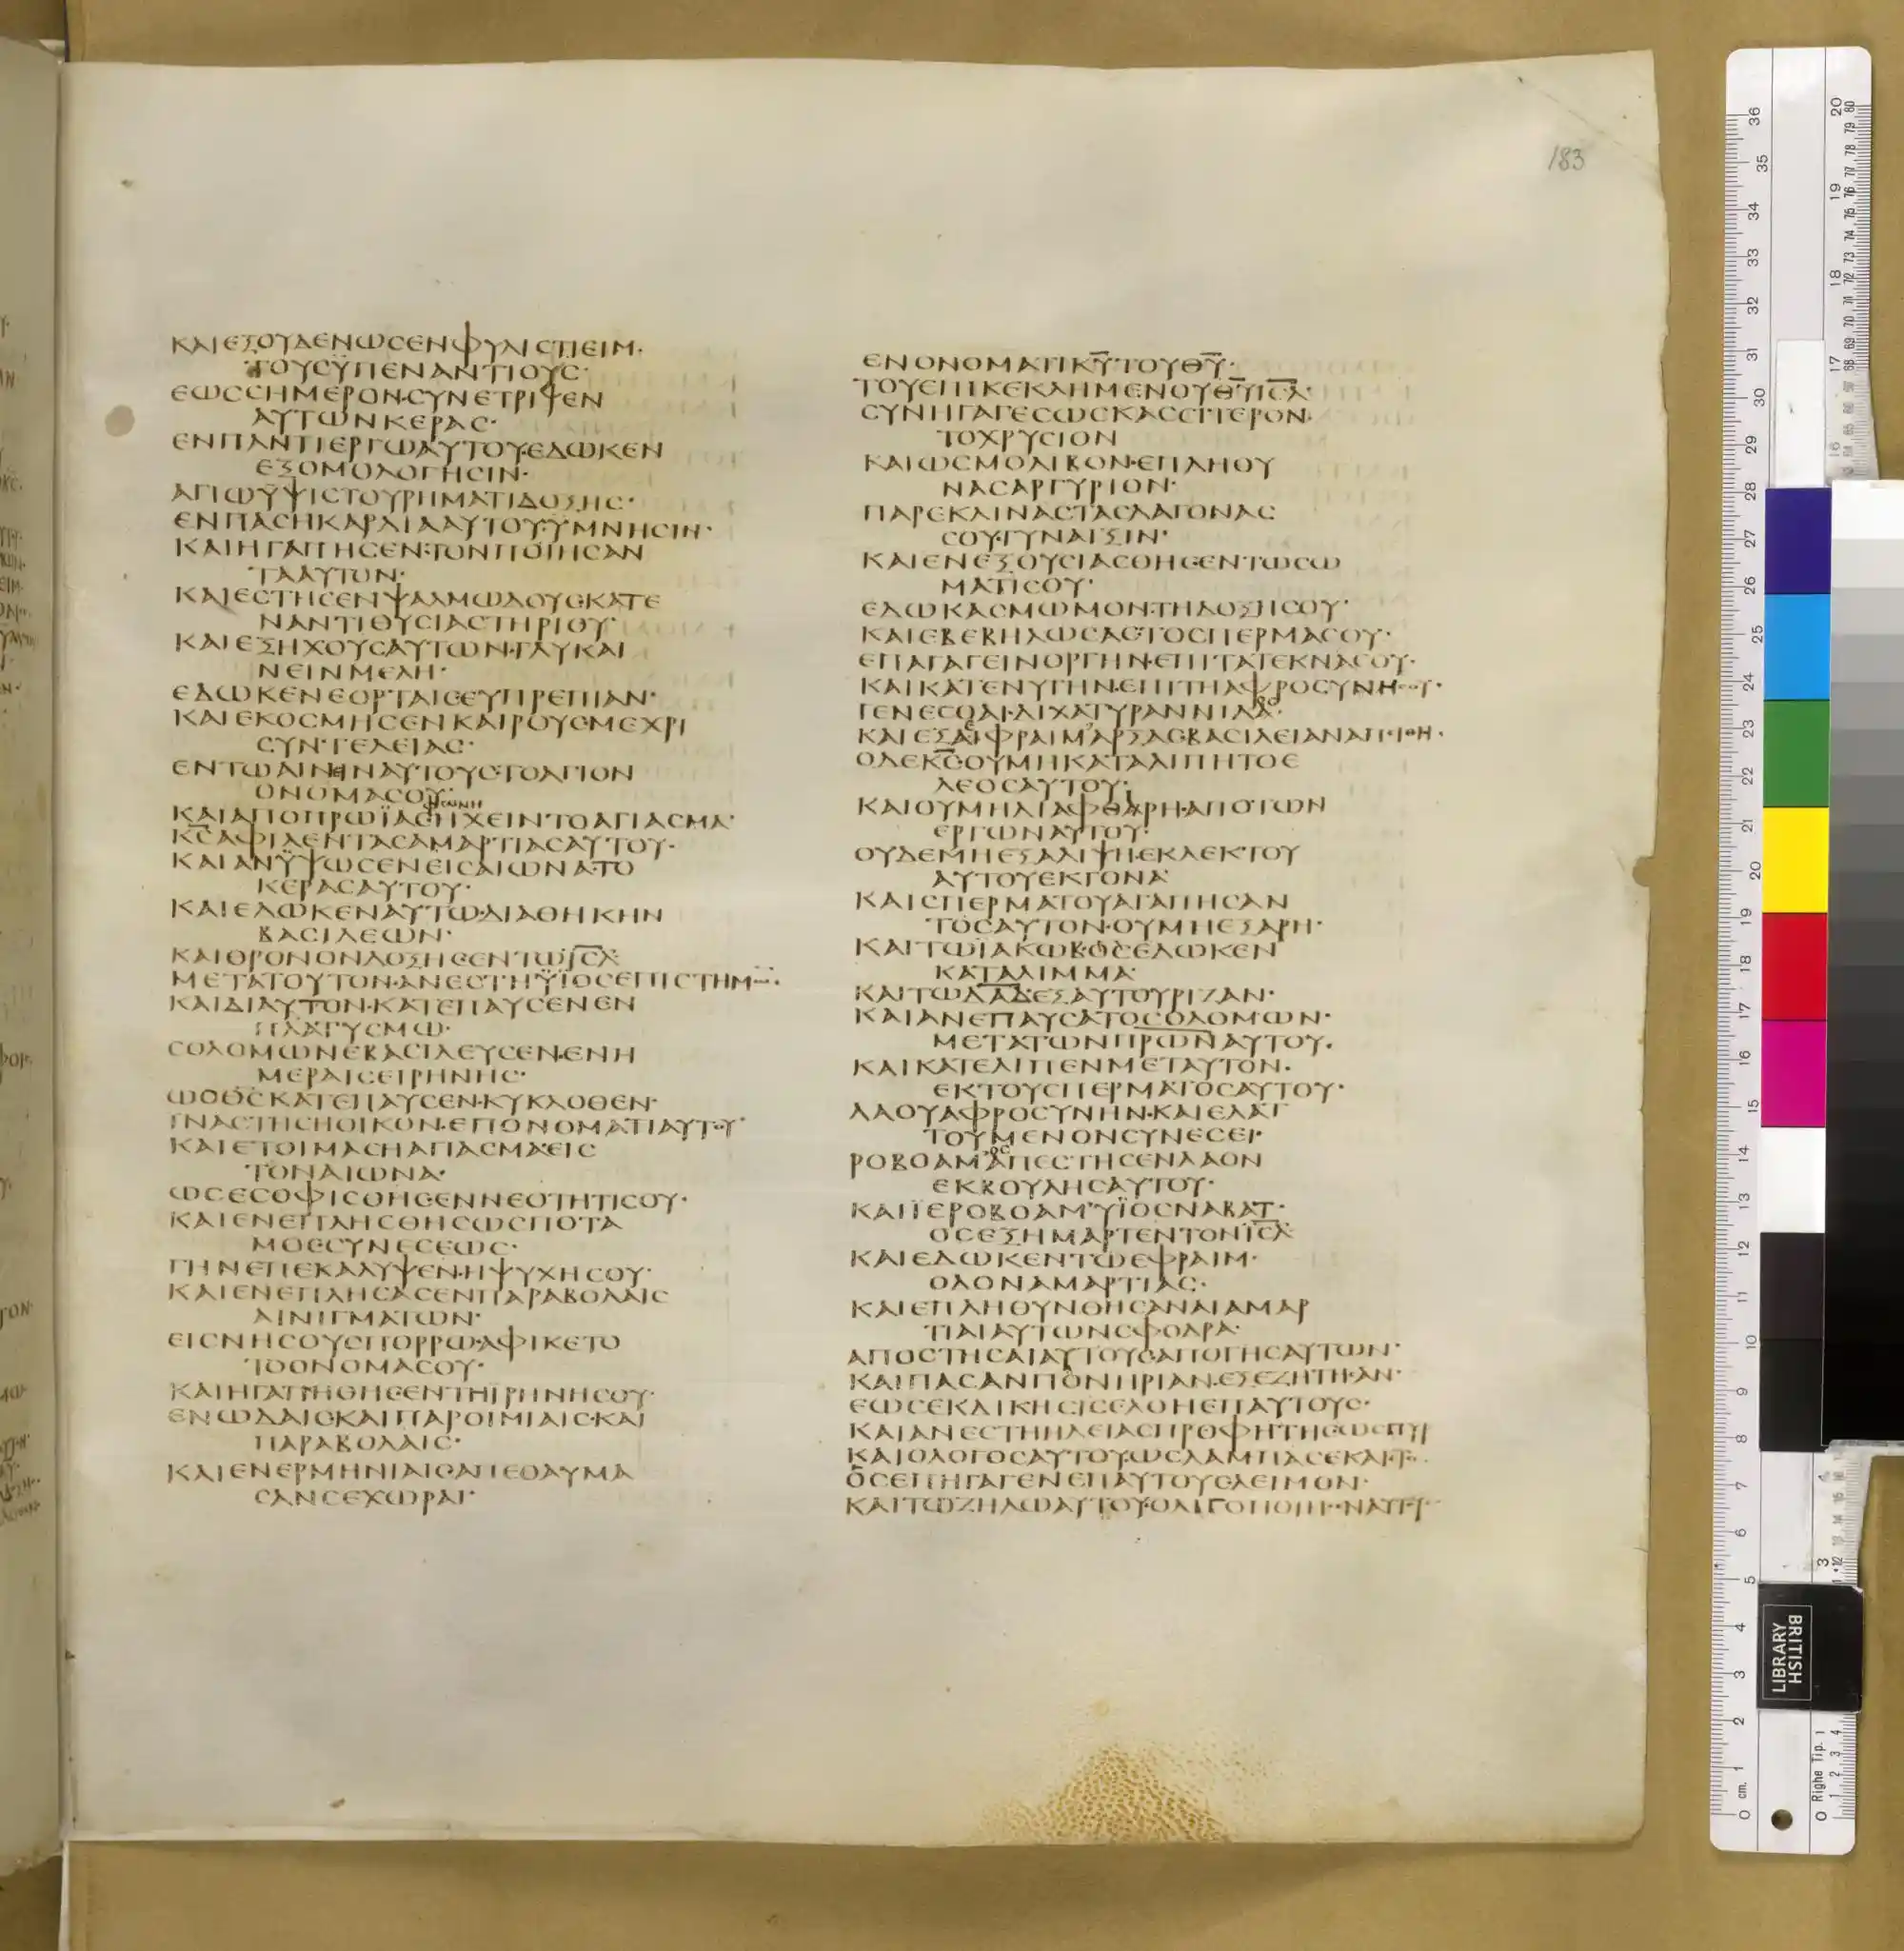 183
ΚΑΙΕΞΟΥΔΕΝΩϹΕΝΦΥΛΙϹΤΙΕΙΜ·
ΤΟΥϹΫΠΕΝΑΝΤΙΟΥϹ·
ΕΩϹϹΗΜΕΡΟΝ·ϹΥΝΕΤΡΙΨΕΝ
ΑΥΤΩΝΚΕΡΑϹ·
ΕΝΠΑΝΤΙΕΡΓΩΑΥΤΟΥ·ΕΔΩΚΕΝ
ΕΞΟΜΟΛΟΓΗϹΙΝ·
ΑΓΙΩΫΨΙϹΤΟΥΡΗΜΑΤΙΔΟΞΗϹ·
ΕΝΠΑϹΗΚΑΡΔΙΑΑΥΤΟΥ·ΫΜΝΗϹΙΝ·
ΚΑΙΗΓΑΠΗϹΕΝ·ΤΟΝΠΟΙΗϹΑΝ
ΤΑΑΥΤΟΝ·
ΚΑΙΕϹΤΗϹΕΝΨΑΛΜΩΔΟΥϹΚΑΤΕ
ΝΑΝΤΙΘΥϹΙΑϹΤΗΡΙΟΥ·
ΚΑΙΕΞΗΧΟΥϹΑΥΤΩΝ·ΓΛΥΚΑΙ
ΝΕΙΝΜΕΛΗ·
ΕΔΩΚΕΝΕΟΡΤΑΙϹΕΥΠΡΕΠΙΑΝ·
ΚΑΙΕΚΟϹΜΗϹΕΝΚΑΙΡΟΥϹΜΕΧΡΙ
ϹΥΝΤΕΛΕΙΑϹ·
ΕΝΤΩΑΙΝΙΝΑΥΤΟΥϹΤΟΑΓΙΟΝ
ΟΝΟΜΑϹΟΥ·
ΦΩΝΗ
ΚΑΙΑΠΟΠΡΩΪΑϹΗΧΕΙΝΤΟΑΓΙΑϹΜΑ·
ΚϹΑΦΙΛΕΝΤΑϹΑΜΑΡΤΙΑϹΑΥΤΟΥ·
ΚΑΙΑΝΫΨΩϹΕΝΕΙϹΑΙΩΝΑΤΟ
ΚΕΡΑϹΑΥΤΟΥ·
ΚΑΙΕΔΩΚΕΝΑΥΤΩ·ΔΙΑΘΗΚΗΝ
ΒΑϹΙΛΕΩΝ·
ΚΑΙΘΡΟΝΟΝΔΟΞΗϹΕΝΤΩΙϹΛ·
ΜΕΤΑΤΟΥΤΟΝ·ΑΝΕϹΤΗΫΪΟϹΕΠΙϹΤΗΜ
ΚΑΙΔΙΑΥΤΟΝ·ΚΑΤΕΠΑΥϹΕΝΕΝ
ΠΛΑΤΥϹΜΩ·
ϹΟΛΟΜΩΝΕΒΑϹΙΛΕΥϹΕΝ·ΕΝΗ
ΜΕΡΑΙϹΕΙΡΗΝΗϹ·
ΩΟΘϹΚΑΤΕΠΑΥϹΕΝ·ΚΥΚΛΟΘΕΝ·
ΙΝΑϹΤΗϹΗΟΙΚΟΝ·ΕΠΟΝΟΜΑΤΙΑΥΤΟΥ
ΚΑΙΕΤΟΙΜΑϹΗΑΓΙΑϹΜΑ·ΕΙϹ
ΤΟΝΑΙΩΝΑ·
ΩϹΕϹΟΦΙϹΘΗϹΕΝΝΕΟΤΗΤΙϹΟΥ·
ΚΑΙΕΝΕΠΛΗϹΘΗϹΩϹΠΟΤΑ
ΜΟϹϹΥΝΕϹΕΩϹ·
ΓΗΝΕΠΕΚΑΛΥΨΕΝ·ΗΨΥΧΗϹΟΥ·
ΚΑΙΕΝΕΠΛΗϹΑϹΕΝΠΑΡΑΒΟΛΑΙϹ
ΑΙΝΙΓΜΑΤΩΝ·
ΕΙϹΝΗϹΟΥϹΠΟΡΡΩ·ΑΦΙΚΕΤΟ
ΤΟΟΝΟΜΑϹΟΥ·
ΚΑΙΗΓΑΠΗΘΗϹΕΝΤΗΙΡΗΝΗϹΟΥ·
ΕΝΩΔΑΙϹΚΑΙΠΑΡΟΙΜΙΑΙϹ·ΚΑΙ
ΠΑΡΑΒΟΛΑΙϹ·
ΚΑΙΕΝΕΡΜΗΝΙΑΙϹΑΠΕΘΑΥΜΑ
ϹΑΝϹΕΧΩΡΑΙ·
ΕΝΟΝΟΜΑΤΙΚΥ·ΤΟΥΘΥ·
ΤΟΥΕΠΙΚΕΚΛΗΜΕΝΟΥΘΥΙϹΛ·
ϹΥΝΗΓΑΓΕϹΩϹΚΑϹϹΙΤΕΡΟΝ·
ΤΟΧΡΥϹΙΟΝ
ΚΑΙΩϹΜΟΛΙΒΟΝ·ΕΠΛΗΟΥ
ΝΑϹΑΡΓΥΡΙΟΝ·
ΠΑΡΕΚΛΙΝΑϹΤΑϹΛΑΓΟΝΑϹ
ϹΟΥ·ΓΥΝΑΙΞΙΝ·
ΚΑΙΕΝΕΞΟΥϹΙΑϹΘΗϹΕΝΤΩϹΩ
ΜΑΤΙϹΟΥ·
ΕΔΩΚΑϹΜΩΜΟΝ·ΤΗΔΟΞΗϹΟΥ·
ΚΑΙΕΒΕΒΗΛΩϹΑϹΤΟϹΠΕΡΜΑϹΟΥ·
ΕΠΑΓΑΓΕΙΝΟΡΓΗΝ·ΕΠΙΤΑΤΕΚΝΑϹΟΥ·
ΚΑΙΚΑΤΕΝΥΓΗΝ·ΕΠΙΤΗΑΦΡΟϹΥΝΗ
ΓΕΝΕϹΘΑΙ·ΔΙΧΑΤΥΡΑΝΝΙΔΑ·
ΚΑΙΕΞΑΙΦΡΑΙΜΑΡΞΑϹΒΑϹΙΛΕΙΑΝΑΠΙΘΗ·
ΟΔΕΚϹΟΥΜΗΚΑΤΑΛΙΠΗΤΟΕ
ΛΕΟϹΑΥΤΟΥ·
ΚΑΙΟΥΜΗΔΙΑΦΘΑΡΗ·ΑΠΟΤΩΝ
ΕΡΓΩΝΑΥΤΟΥ·
ΟΥΔΕΜΗΕΞΑΛΙΨΗ·ΕΚΛΕΚΤΟΥ
ΑΥΤΟΥΕΚΓΟΝΑ
ΚΑΙϹΠΕΡΜΑΤΟΥΑΓΑΠΗϹΑΝ
ΤΟϹΑΥΤΟΝ·ΟΥΜΗΕΞΑΡΗ·
ΚΑΙΤΩΪΑΚΩΒ·ΘϹΕΔΩΚΕΝ
ΚΑΤΑΛΙΜΜΑ·
ΚΑΙΤΩΔΑΔ·ΕΞΑΥΤΟΥΡΙΖΑΝ·
ΚΑΙΑΝΕΠΑΥϹΑΤΟϹΟΛΟΜΩΝ·
ΜΕΤΑΤΩΝΠΡΩΝΑΥΤΟΥ·
ΚΑΙΚΑΤΕΛΙΠΕΝΜΕΤΑΥΤΟΝ·
ΕΚΤΟΥϹΠΕΡΜΑΤΟϹΑΥΤΟΥ·
ΛΑΟΥΑΦΡΟϹΥΝΗΝ·ΚΑΙΕΛΑΤ
ΤΟΥΜΕΝΟΝϹΥΝΕϹΕΙ·
ΡΟΒΟΑΜΑΠΕϹΤΗϹΕΝΛΑΟΝ
ΕΚΒΟΥΛΗϹΑΥΤΟΥ·
ΚΑΙΪΕΡΟΒΟΑΜΫΪΟϹΝΑΒΑΤ·
ΟϹΕΞΗΜΑΡΤΕΝΤΟΝΙϹΛ·
ΚΑΙΕΔΩΚΕΝΤΩΕΦΡΑΙΜ·
ΟΔΟΝΑΜΑΡΤΙΑϹ·
ΚΑΙΕΠΛΗΘΥΝΘΗϹΑΝΑΙΑΜΑΡ
ΤΙΑΙΑΥΤΩΝϹΦΟΔΡΑ·
ΑΠΟϹΤΗϹΑΙΑΥΤΟΥϹΑΠΟΓΗϹΑΥΤΩΝ·
ΚΑΙΠΑϹΑΝΠΟΝΗΡΙΑΝ·ΕΞΕΖΗΤΗϹΑΝ·
ΕΩϹΕΚΔΙΚΗϹΙϹΕΛΘΗΕΠΑΥΤΟΥϹ·
ΚΑΙΑΝΕϹΤΗΗΛΕΙΑϹΠΡΟΦΗΤΗϹΩϹΠΥΡ
ΚΑΙΟΛΟΓΟϹΑΥΤΟΥ·ΩϹΛΑΜΠΑϹΕΚΑΙΕΤΟ
ΟϹΕΠΗΓΑΓΕΝΕΠΑΥΤΟΥϹΛΕΙΜΟΝ·
ΚΑΙΤΩΖΗΛΩΑΥΤΟΥ·ΟΛΙΓΟΠΟΙΗ
BRITISH
LIBRARY